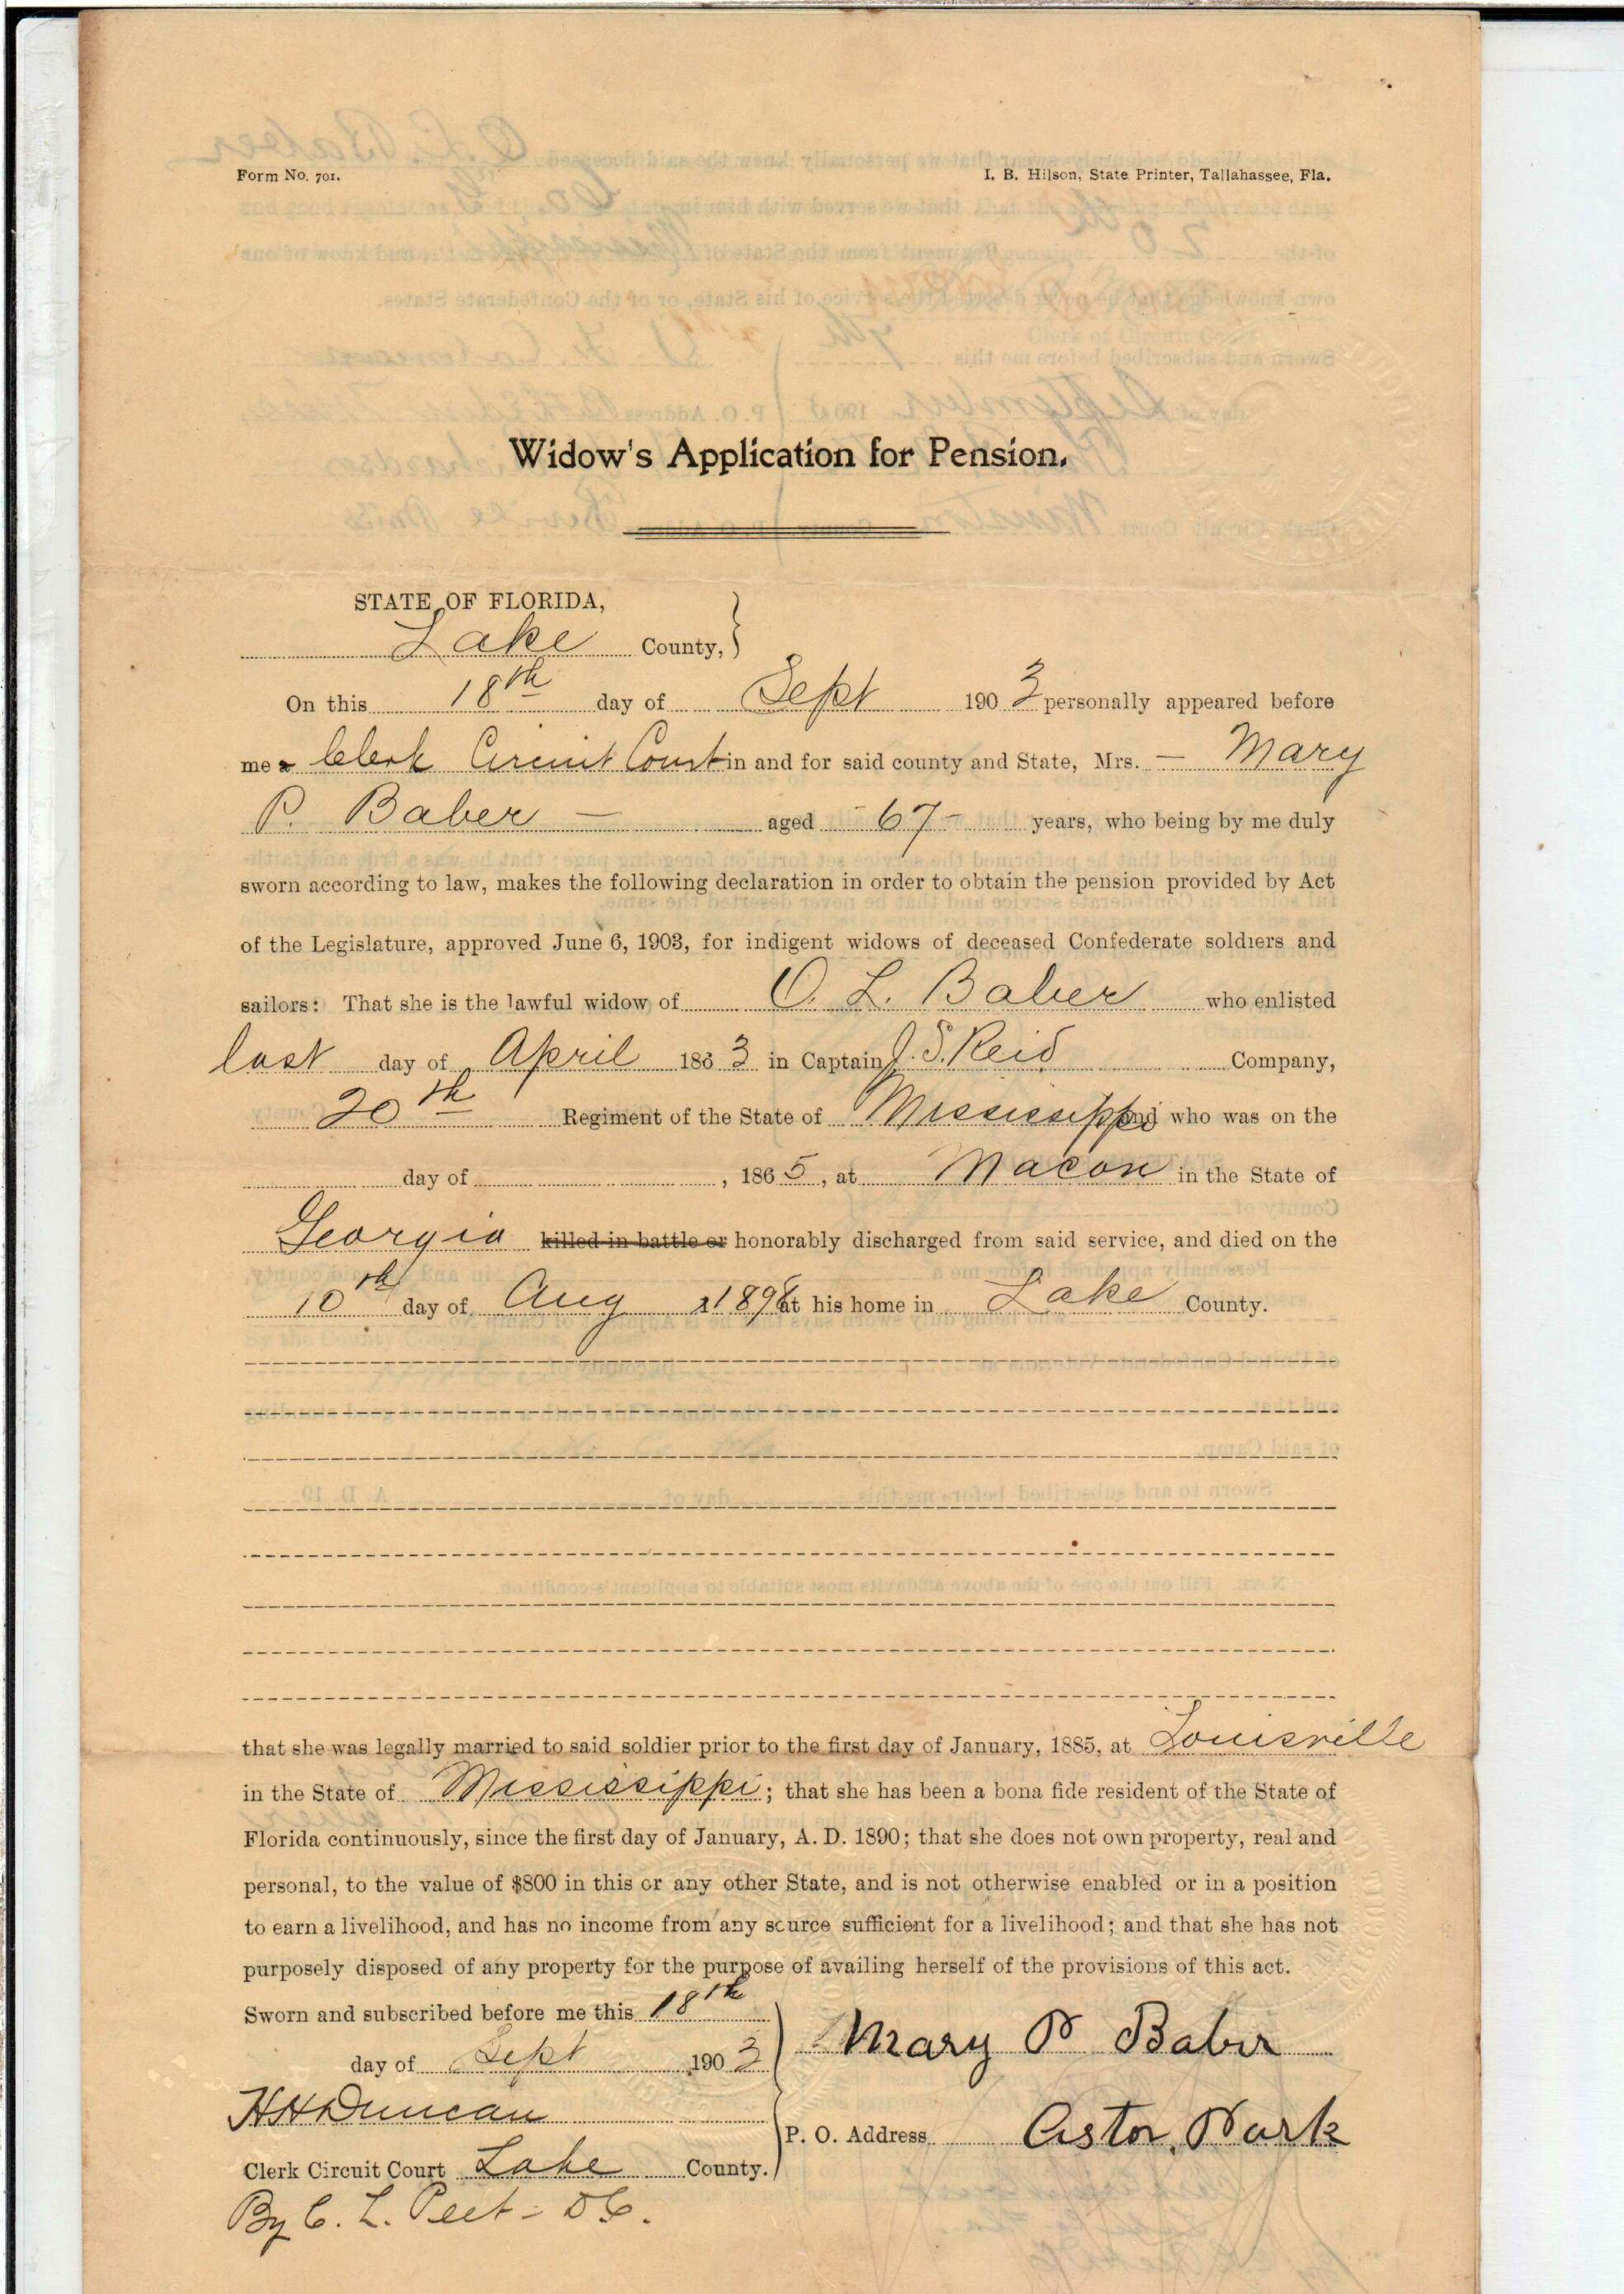 Form No. 701.
I. B. Hilson, State Printer, Tallahassee, Fla.
Widow's Application for Pension.
STATE OF FLORIDA,
Lake County,
On this 18th day of Sept 1903 personally appeared before
me a Clerk Circuit Court in and for said county and State, Mrs. — Mary
P. Baber — aged - 67 - years, who being by me duly
sworn according to law, makes the following declaration in order to obtain the pension provided by Act
of the Legislature, approved June 6, 1903, for indigent widows of deceased Confederate soldiers and
sailors: That she is the lawful widow of O. L. Baber who enlisted
last day of April 1863 in Captain J. S. Reid Company,
20th Regiment of the State of Mississippi and who was on the
day of , 1865, at Macon in the State of
Georgia killed in battle or honorably discharged from said service, and died on the
10th day of Aug 1898 at his home in Lake County.
that she was legally married to said soldier prior to the first day of January, 1885, at Louisville
in the State of Mississippi; that she has been a bona fide resident of the State of
Florida continuously, since the first day of January, A. D. 1890; that she does not own property, real and
personal, to the value of $800 in this or any other State, and is not otherwise enabled or in a position
to earn a livelihood, and has no income from any scurce sufficient for a livelihood; and that she has not
purposely disposed of any property for the purpose of availing herself of the provisions of this act.
Sworn and subscribed before me this 18th
day of Sept 1903
Mary P Baber
H H Duncan
P. O. Address Astor, Park
Clerk Circuit Court Lake County.
By C. L. Peet - D C.